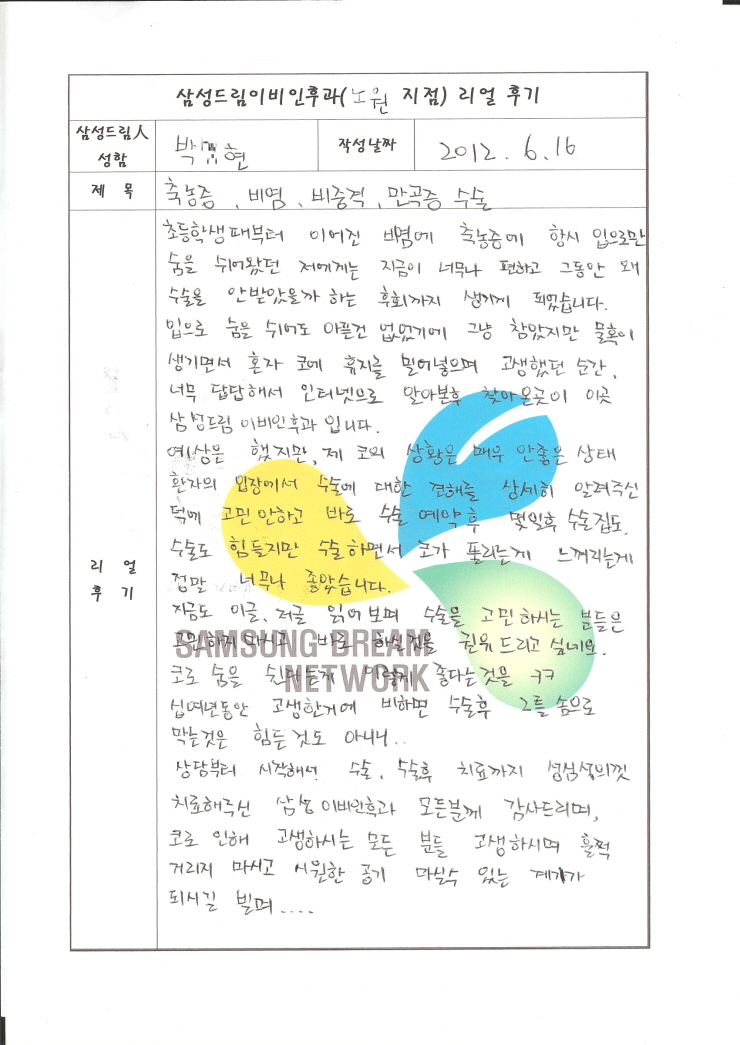 삼성드림이비인후과(노원 지점) 리얼 후기
삼성드림人 성함
박 현
작성날짜
2012. 6. 16
제 목
축농증, 비염, 비중격, 만곡증 수술
리 얼 후 기
초등학생때부터 이어진 비염에 축농증에 항시 입으로만
숨을 쉬어왔던 저에게는 지금이 너무나 편하고 그동안 왜
수술을 안받았을까 하는 후회까지 생기게 되었습니다.
입으로 숨을 쉬어도 아픈건 없었기에 그냥 참았지만 물혹이
생기면서 혼자 코에 휴지를 밀어넣으며 고생했던 순간,
너무 답답해서 인터넷으로 알아본후 찾아온곳이 이곳
삼성드림 이비인후과 입니다.
예상은 했지만, 제 코의 상황은 매우 안좋은 상태
환자의 입장에서 수술에 대한 견해를 상세히 알려주신
덕에 고민 안하고 바로 수술 예약후 몇일후 수술집도.
수술도 힘들지만 수술하면서 코가 풀리는게 느껴지는게
정말 너무나 좋았습니다.
지금도 이글, 저글 읽어보며 수술을 고민하시는 분들은
고민하지마시고 바로 하실것을 권유드리고 싶네요.
코로 숨을 쉰다는게 이렇게 좋다는것을 ㅋㅋ
십여년동안 고생한거에 비하면 수술후 2틀 솜으로
막는것은 힘든것도 아니니..
상담부터 시작해서 수술, 수술후 치료까지 성심성의껏
치료해주신 삼성이비인후과 모든분께 감사드리며,
코로 인해 고생하시는 모든 분들 고생하시며 훌쩍
거리지 마시고 시원한 공기 마실수 있는 계기가
되시길 빌며....
SAMSUNG DREAM
NETWORK